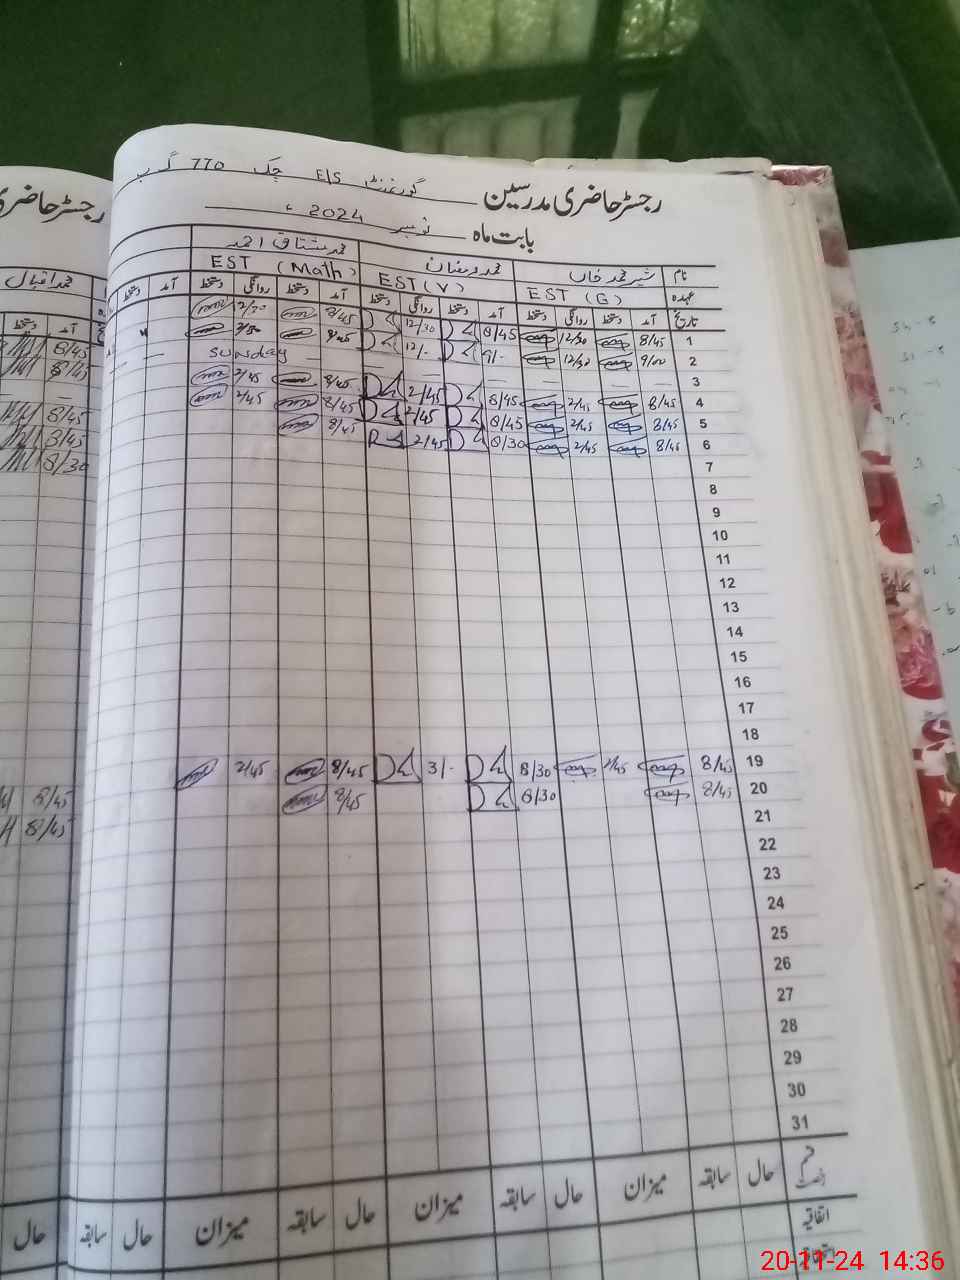 گورنمنٹ E/S چک 770 گ ب
رجسٹر حاضری مدرسین
رجسٹر حاضری
بابت ماہ نومبر 2024ء
نام شیر محمد خاں محمد رمضان محمد مشتاق احمد
محمد اقبال
عہدہ EST (G) EST (V) EST (Math)
تاریخ آمد دستخط روانگی دستخط آمد دستخط روانگی دستخط آمد دستخط روانگی دستخط آمد دستخط
آمد دستخط
1 8/45 12/30 8/45 12/30 8/45 12/30
8/45
2 9/00 12/30 9/- 12/- 8/45
8/45
3 — — — — — Sunday — —
4 8/45 2/45 8/45 2/45 8/45 2/45
8/45
5 8/45 2/45 8/45 2/45 8/45 2/45
8/45
6 8/45 2/45 8/30 2/45 8/45
8/30
7
8
9
10
11
12
13
14
15
16
17
18
19 8/45 2/45 8/30 3/- 8/45 2/45
8/45
20 8/45 8/30 8/45
8/45
21
22
23
24
25
26
27
28
29
30
31
قسم رخصت حال سابقہ میزان حال سابقہ میزان حال سابقہ میزان حال سابقہ
حال
اتفاقیہ
20-11-24 14:36